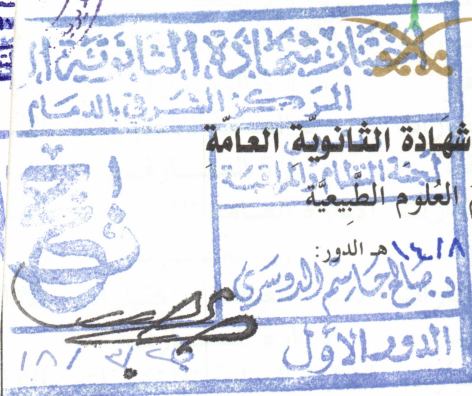 اختبار شهادة الثانوية ال
المركز الشرقي بالدمام
شهادة الثانوية العامة
لجنة النظام والمراقبة
م العلوم الطبيعية
١٤١٨ هـ الدور:
د. صالح جاسم الدوسري
الدور الأول